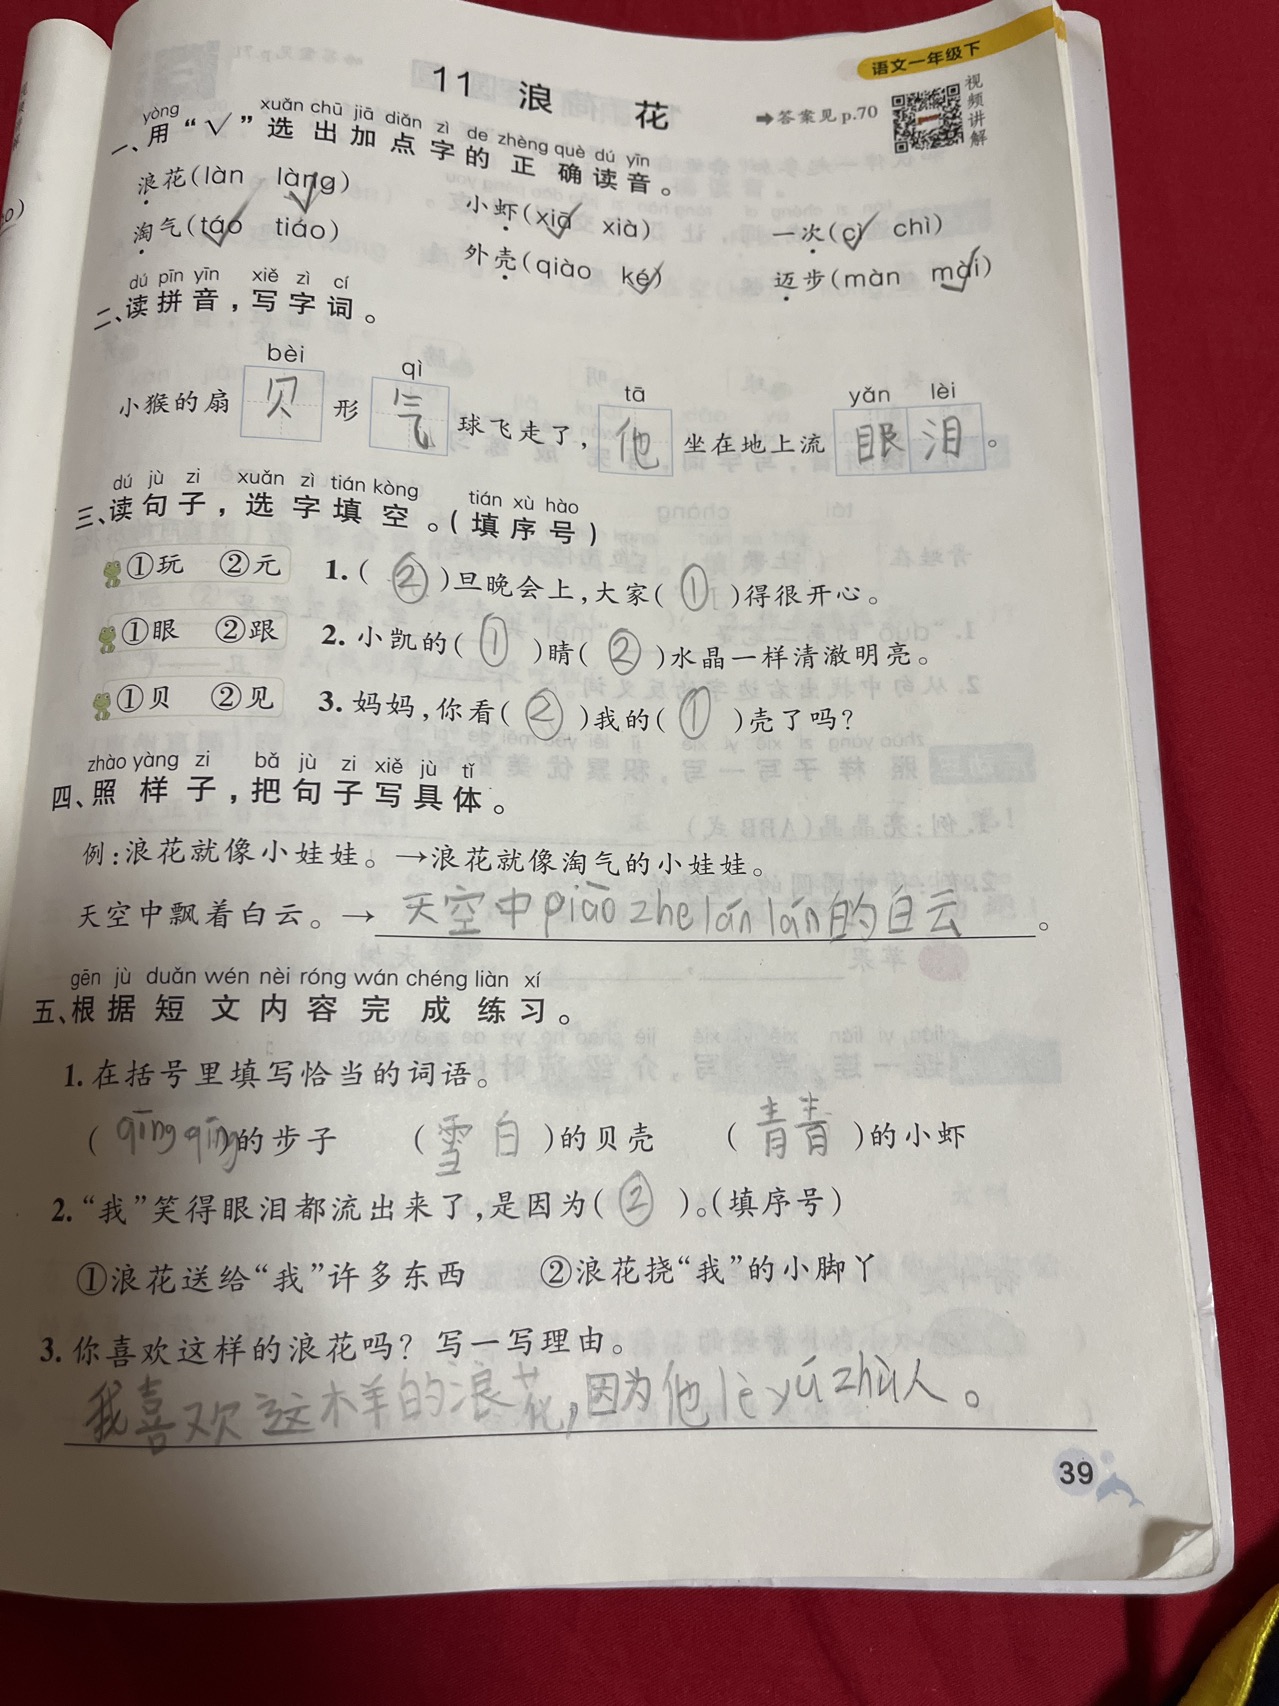 语文一年级下
11 浪花
➡答案见p.70
视频讲解
yòng xuǎn chū jiā diǎn zì de zhèng què dú yīn
一、用“√”选出加点字的正确读音。
浪花(làn làng√)
小虾(xiā√ xià)
一次(cì√ chì)
淘气(táo√ tiáo)
外壳(qiào ké√)
迈步(màn mài√)
dú pīn yīn xiě zì cí
二、读拼音,写字词。
bèi qì tā yǎn lèi
小猴的扇贝形气球飞走了,他坐在地上流眼泪。
dú jù zi xuǎn zì tián kòng tián xù hào
三、读句子,选字填空。(填序号)
①玩 ②元 1.(②)旦晚会上,大家(①)得很开心。
①眼 ②跟 2.小凯的(①)睛(②)水晶一样清澈明亮。
①贝 ②见 3.妈妈,你看(②)我的(①)壳了吗?
zhào yàng zi bǎ jù zi xiě jù tǐ
四、照样子,把句子写具体。
例:浪花就像小娃娃。→浪花就像淘气的小娃娃。
天空中飘着白云。→天空中piāo zhe lán lán的白云。
gēn jù duǎn wén nèi róng wán chéng liàn xí
五、根据短文内容完成练习。
1.在括号里填写恰当的词语。
(qīng qīng)的步子 (雪白)的贝壳 (青青)的小虾
2.“我”笑得眼泪都流出来了,是因为(②)。(填序号)
①浪花送给“我”许多东西 ②浪花挠“我”的小脚丫
3.你喜欢这样的浪花吗?写一写理由。
我喜欢这样的浪花,因为他lè yú zhù人。
39